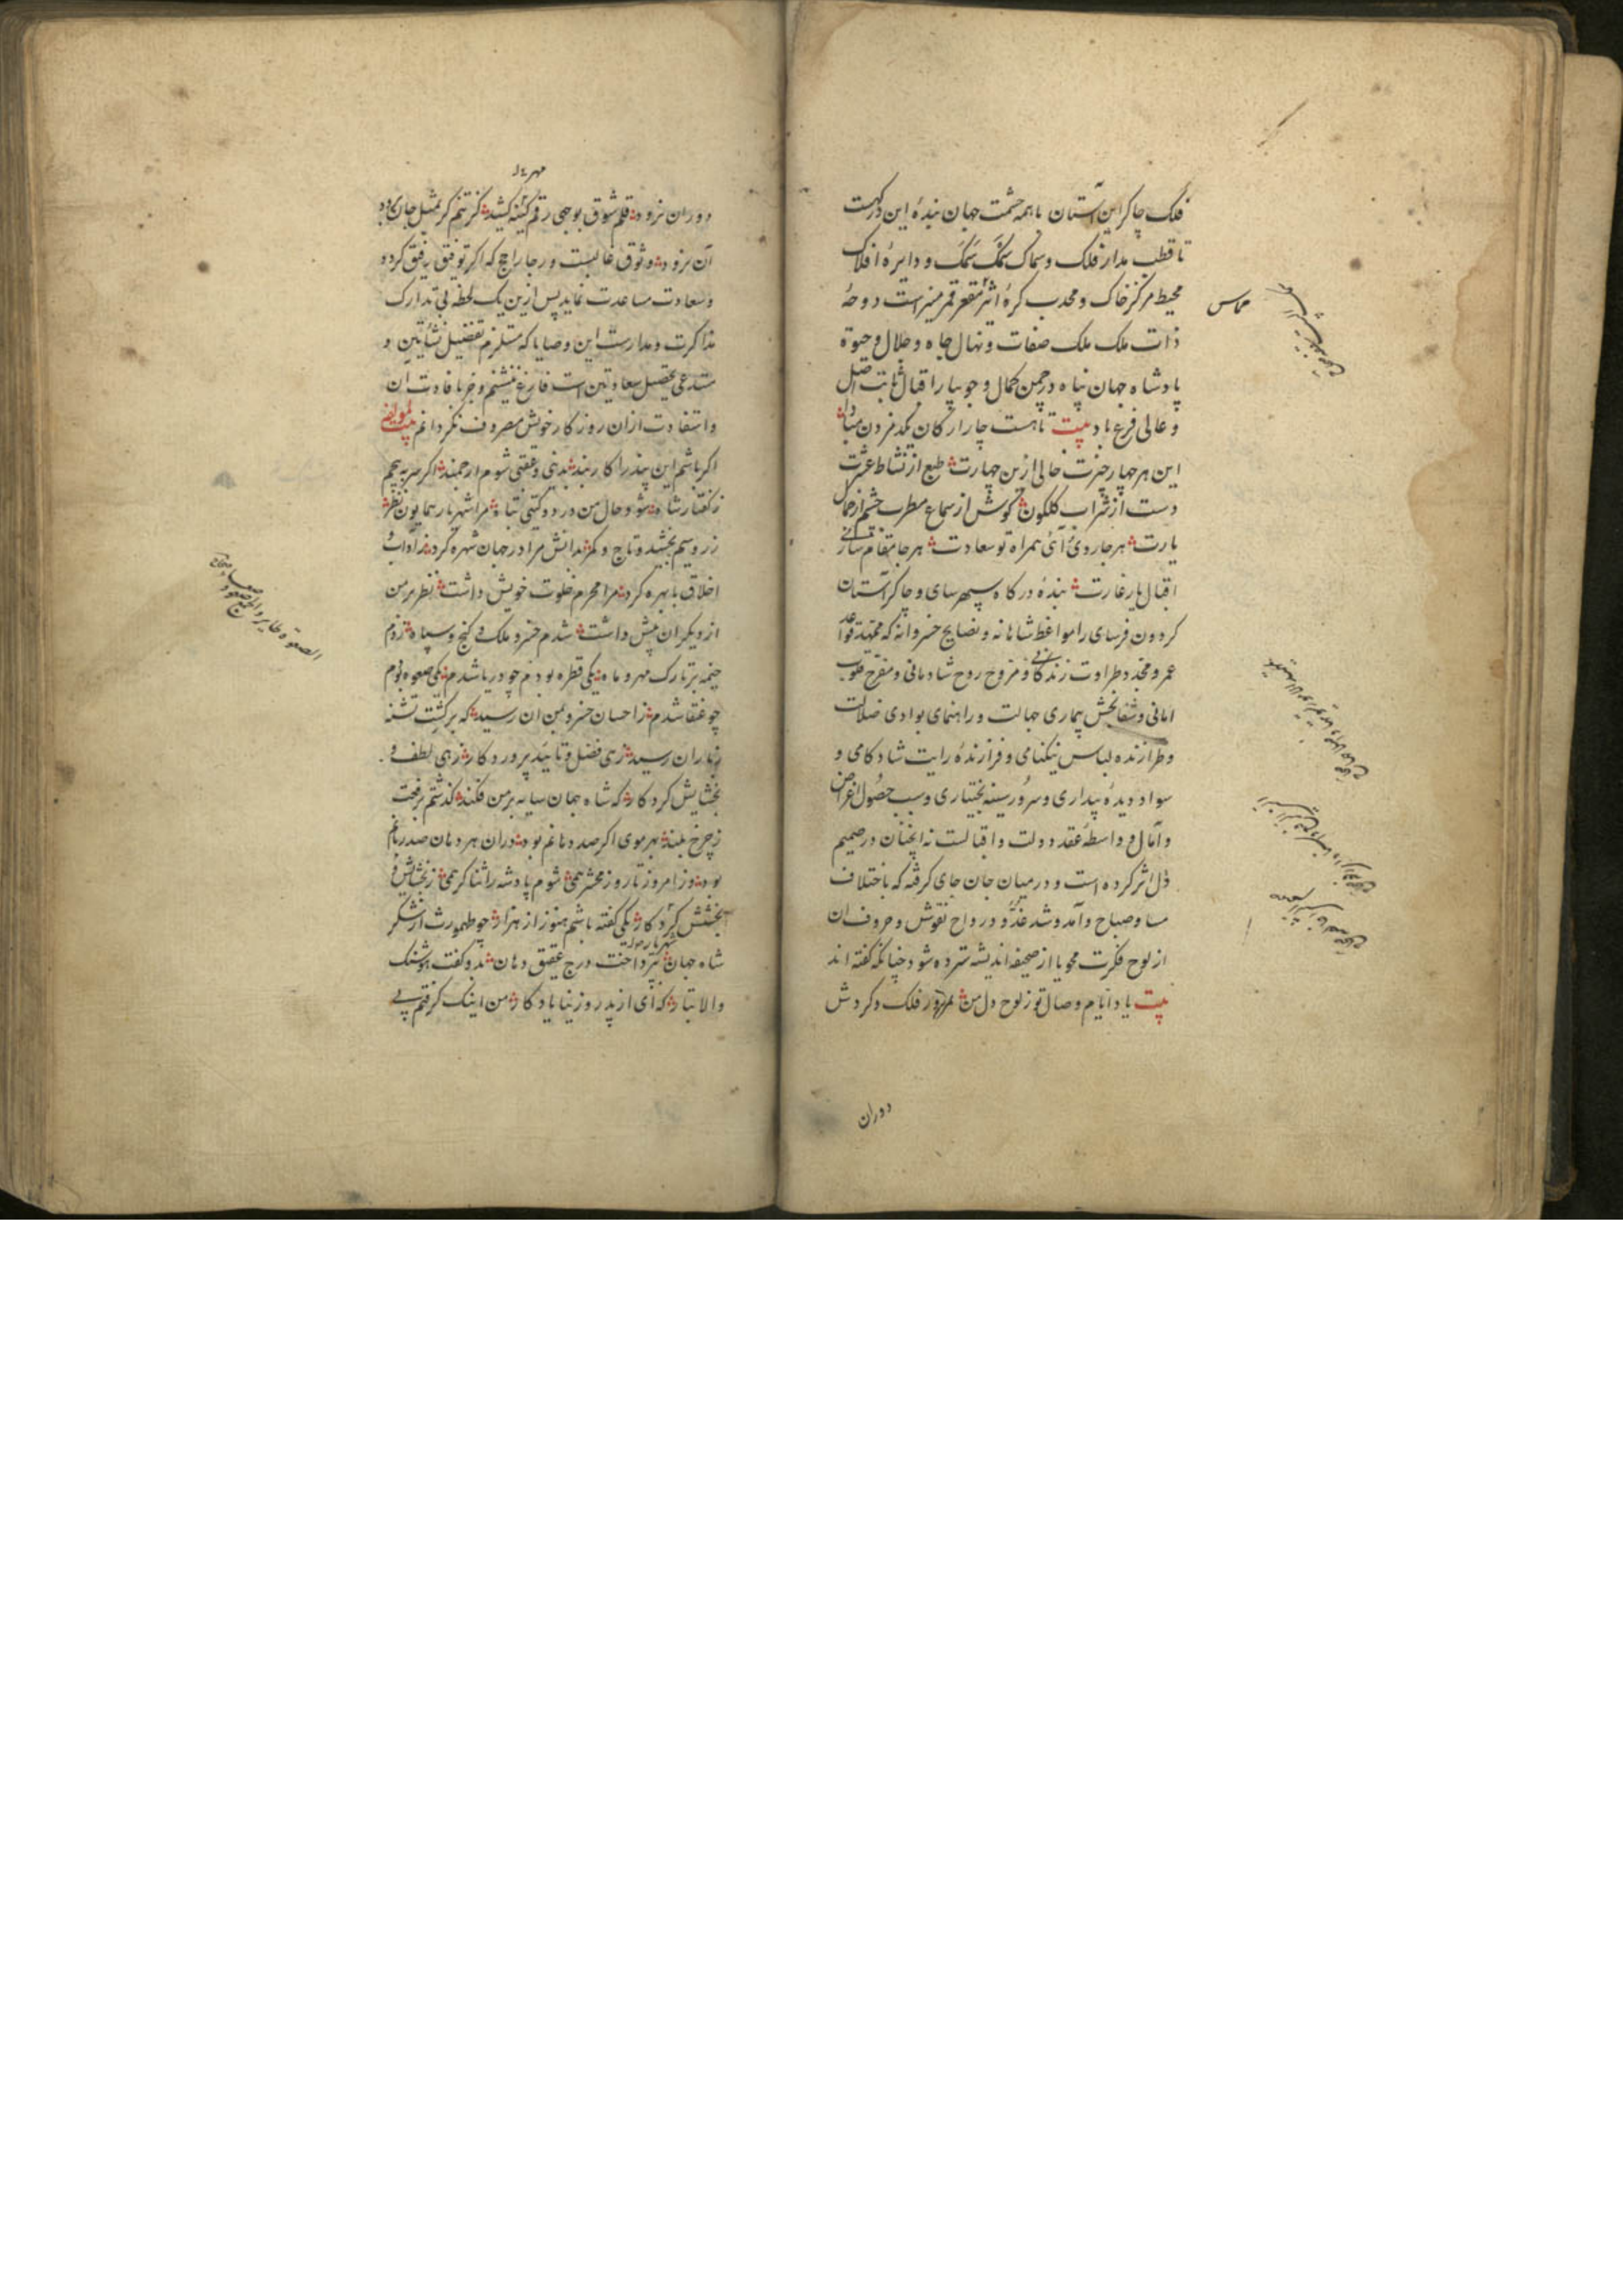 فلک چاکر این آستان با همه حشمت جهان بندهٔ این درگهت
تا قطب مدار فلک و سماک سمک سمک و دایرهٔ افلاک
محیط مرکز خاک و محدب کرهٔ اثیر مقعر قمر منیر است دوحهٔ
مماس
ذات ملک ملک صفات و نهال جاه و جلال و حیوة
پادشاه جهان پناه در چمن کمال و جویبار اقبال ثابت اصل
و عالی فرع باد بیت تا هست چار ارکان یکدم زدن مبادا
این هر چهار چیزت خالی ازین چهارت طبع از نشاط عشرت
دست از شراب کلکون کوش از سماع مطرب چشم از جمال
یارت هر جا روی و آئی همراه تو سعادت هر جا مقام سازی
اقبال یار غارت بندهٔ درکاه سپهر سای و چاکر آستان
کردون فرسای را مواعظ شاهانه و نصایح خسروانه که ممهد قواعد
عمر و مجدد طراوت زندکانی و مروح روح شادمانی و مفرح قلوب
امانی و شفابخش بیماری جهالت و راهنمای بوادی ضلالت
و طرازنده لباس نیکنامی و فرازندهٔ رایت شادکامی و
سواد دیدهٔ بیداری و سرور سینه بختیاری و سبب حصول اغراض
و آمال و واسطهٔ عقد دولت و اقبالست نه آنچنان در صمیم
دل اثر کرده است و در میان جان جای کرفته که باختلاف
مسا و صباح و آمد و شد غدو و رواح نقوش و حروف ان
از لوح فکرت محو یا از صحیفه اندیشه سترده شود چنانکه کفته اند
بیت یاد ایام وصال تو ز لوح دل من بمرور فلک و کردش
دوران
دوران نرود قلم شوق بوجهی رقم کینه کشید کز تنم کر بمثل جان برود
آن نرود وثوق غالبست و رجا راجح که اکر توفیق رفیق کردد
و سعادت مساعدت نماید پس ازین یک لحظه بی تدارک
مذاکرت و مدارست این وصایا که مستلزم تفضیل نشأتین و
مستدعی تحصیل سعادتین است فارغ ننشینم و جز بافادت ان
و استفادت ازان روزکار خویش مصروف نکردانم بیت لمولفه
اکر باشم این پند را کاربند بدنیی و عقبی شوم ارجمند اکر سر بپیچم
ز کفتار شاه شود حال من در دو کیتی تباه مرا شهریار همایون نظر
زر و سیم بخشید و تاج و کمر بدانش مرا در جهان شهره کرد ز آداب و
اخلاق با بهره کرد مرا محرم خلوت خویش داشت نظر بر من
از دیکران بیش داشت شدم خسرو ملک و کنج و سپاه زدم
خیمه بر تارک مهر و ماه یکی قطره بودم چو دریا شدم یکی صعوه بودم
چو عنقا شدم ز احسان خسرو بمن ان رسید که بر کشت تشنه
ز باران رسید زهی فضل و تایید پروردکار زهی لطف و
بخشایش کردکار که شاه جهان سایه بر من فکند کذشتم برفعت
ز چرخ بلند بهر موی اکر صد دهانم بود دران هر دهان صد زبانم
بود وز امروز تا روز محشر همی شوم پادشه را ثناکر همی ز بخشایش و
بخشش کردکار یکی کفته باشم هنوز از هزار چو طهمورث از شکر
شاه جهان بپرداخت درج عقیق دهان بدو کفت هوشنک
والا تبار که ای از پدر وز نیا یادکار من اینک کرفتم پی
الصعوة طایر والجمع صعو